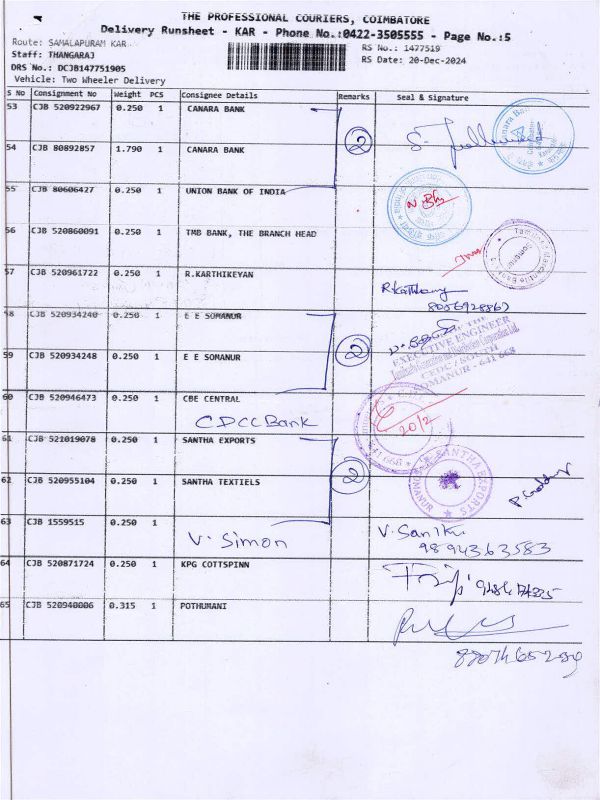 THE PROFESSIONAL COURIERS, COIMBATORE
Delivery Runsheet - KAR - Phone No.:0422-3505555 - Page No.:5
Route: SAMALAPURAM KAR
RS No.: 1477519
Staff: THANGARAJ
RS Date: 20-Dec-2024
DRS No.: DCJB147751905
Vehicle: Two Wheeler Delivery
S No Consignment No Weight PCS Consignee Details Remarks Seal & Signature
53 CJB 520922967 0.250 1 CANARA BANK
2
54 CJB 80892857 1.790 1 CANARA BANK
55 CJB 80606427 0.250 1 UNION BANK OF INDIA
56 CJB 520860091 0.250 1 TMB BANK, THE BRANCH HEAD
57 CJB 520961722 0.250 1 R.KARTHIKEYAN
58 CJB 520934240 0.250 1 E E SOMANUR
2
EXECUTIVE ENGINEER
59 CJB 520934248 0.250 1 E E SOMANUR
SOMANUR - 641 668
60 CJB 520946473 0.250 1 CBE CENTRAL
CDCC Bank
20/2
61 CJB 521019078 0.250 1 SANTHA EXPORTS
2
SANTHA EXPORTS
62 CJB 520955104 0.250 1 SANTHA TEXTIELS
63 CJB 1559515 0.250 1
V. Simon
9894363583
64 CJB 520871724 0.250 1 KPG COTTSPINN
65 CJB 520940006 0.315 1 POTHUMANI